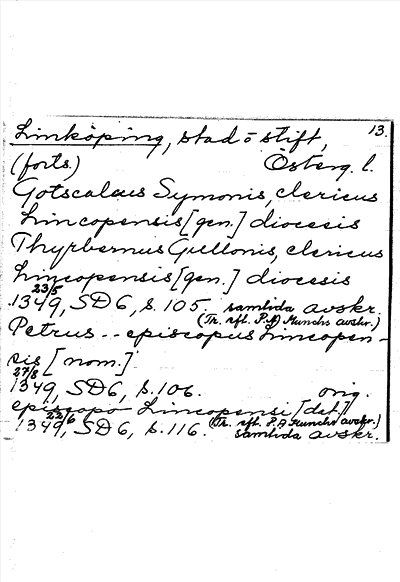 13.
Linköping, stad o stift,
(forts.) Österg. l.
Gotscalcus Symonis, clericus
Lincopensis [gen.] diocesis
Thyrbernus Gullonis, clericus
Lincopensis [gen.] diocesis
23/5
1349, SD6, s. 105. samtida avskr.
(Tr. eft. P.A. Munchs avskr.)
Petrus .. episcopus Lincopen-
sis [nom.]
27/8
1349, SD6, s. 106. orig.
episcopo Lincopensi [dat.]
22/6 (Tr. eft. P.A Munchs avskr.)
1349, SD6, s. 116. samtida avskr.